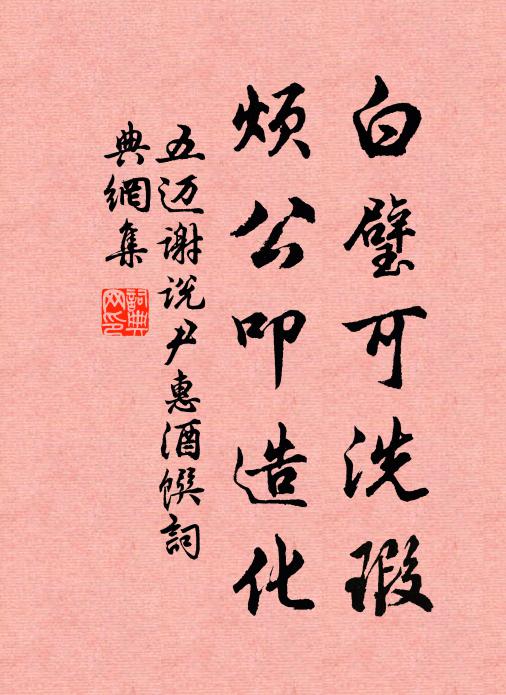 白璧可洗瑕
烦公叩造化
五迈谢说尹惠酒馔詞
典網集
詞典网印